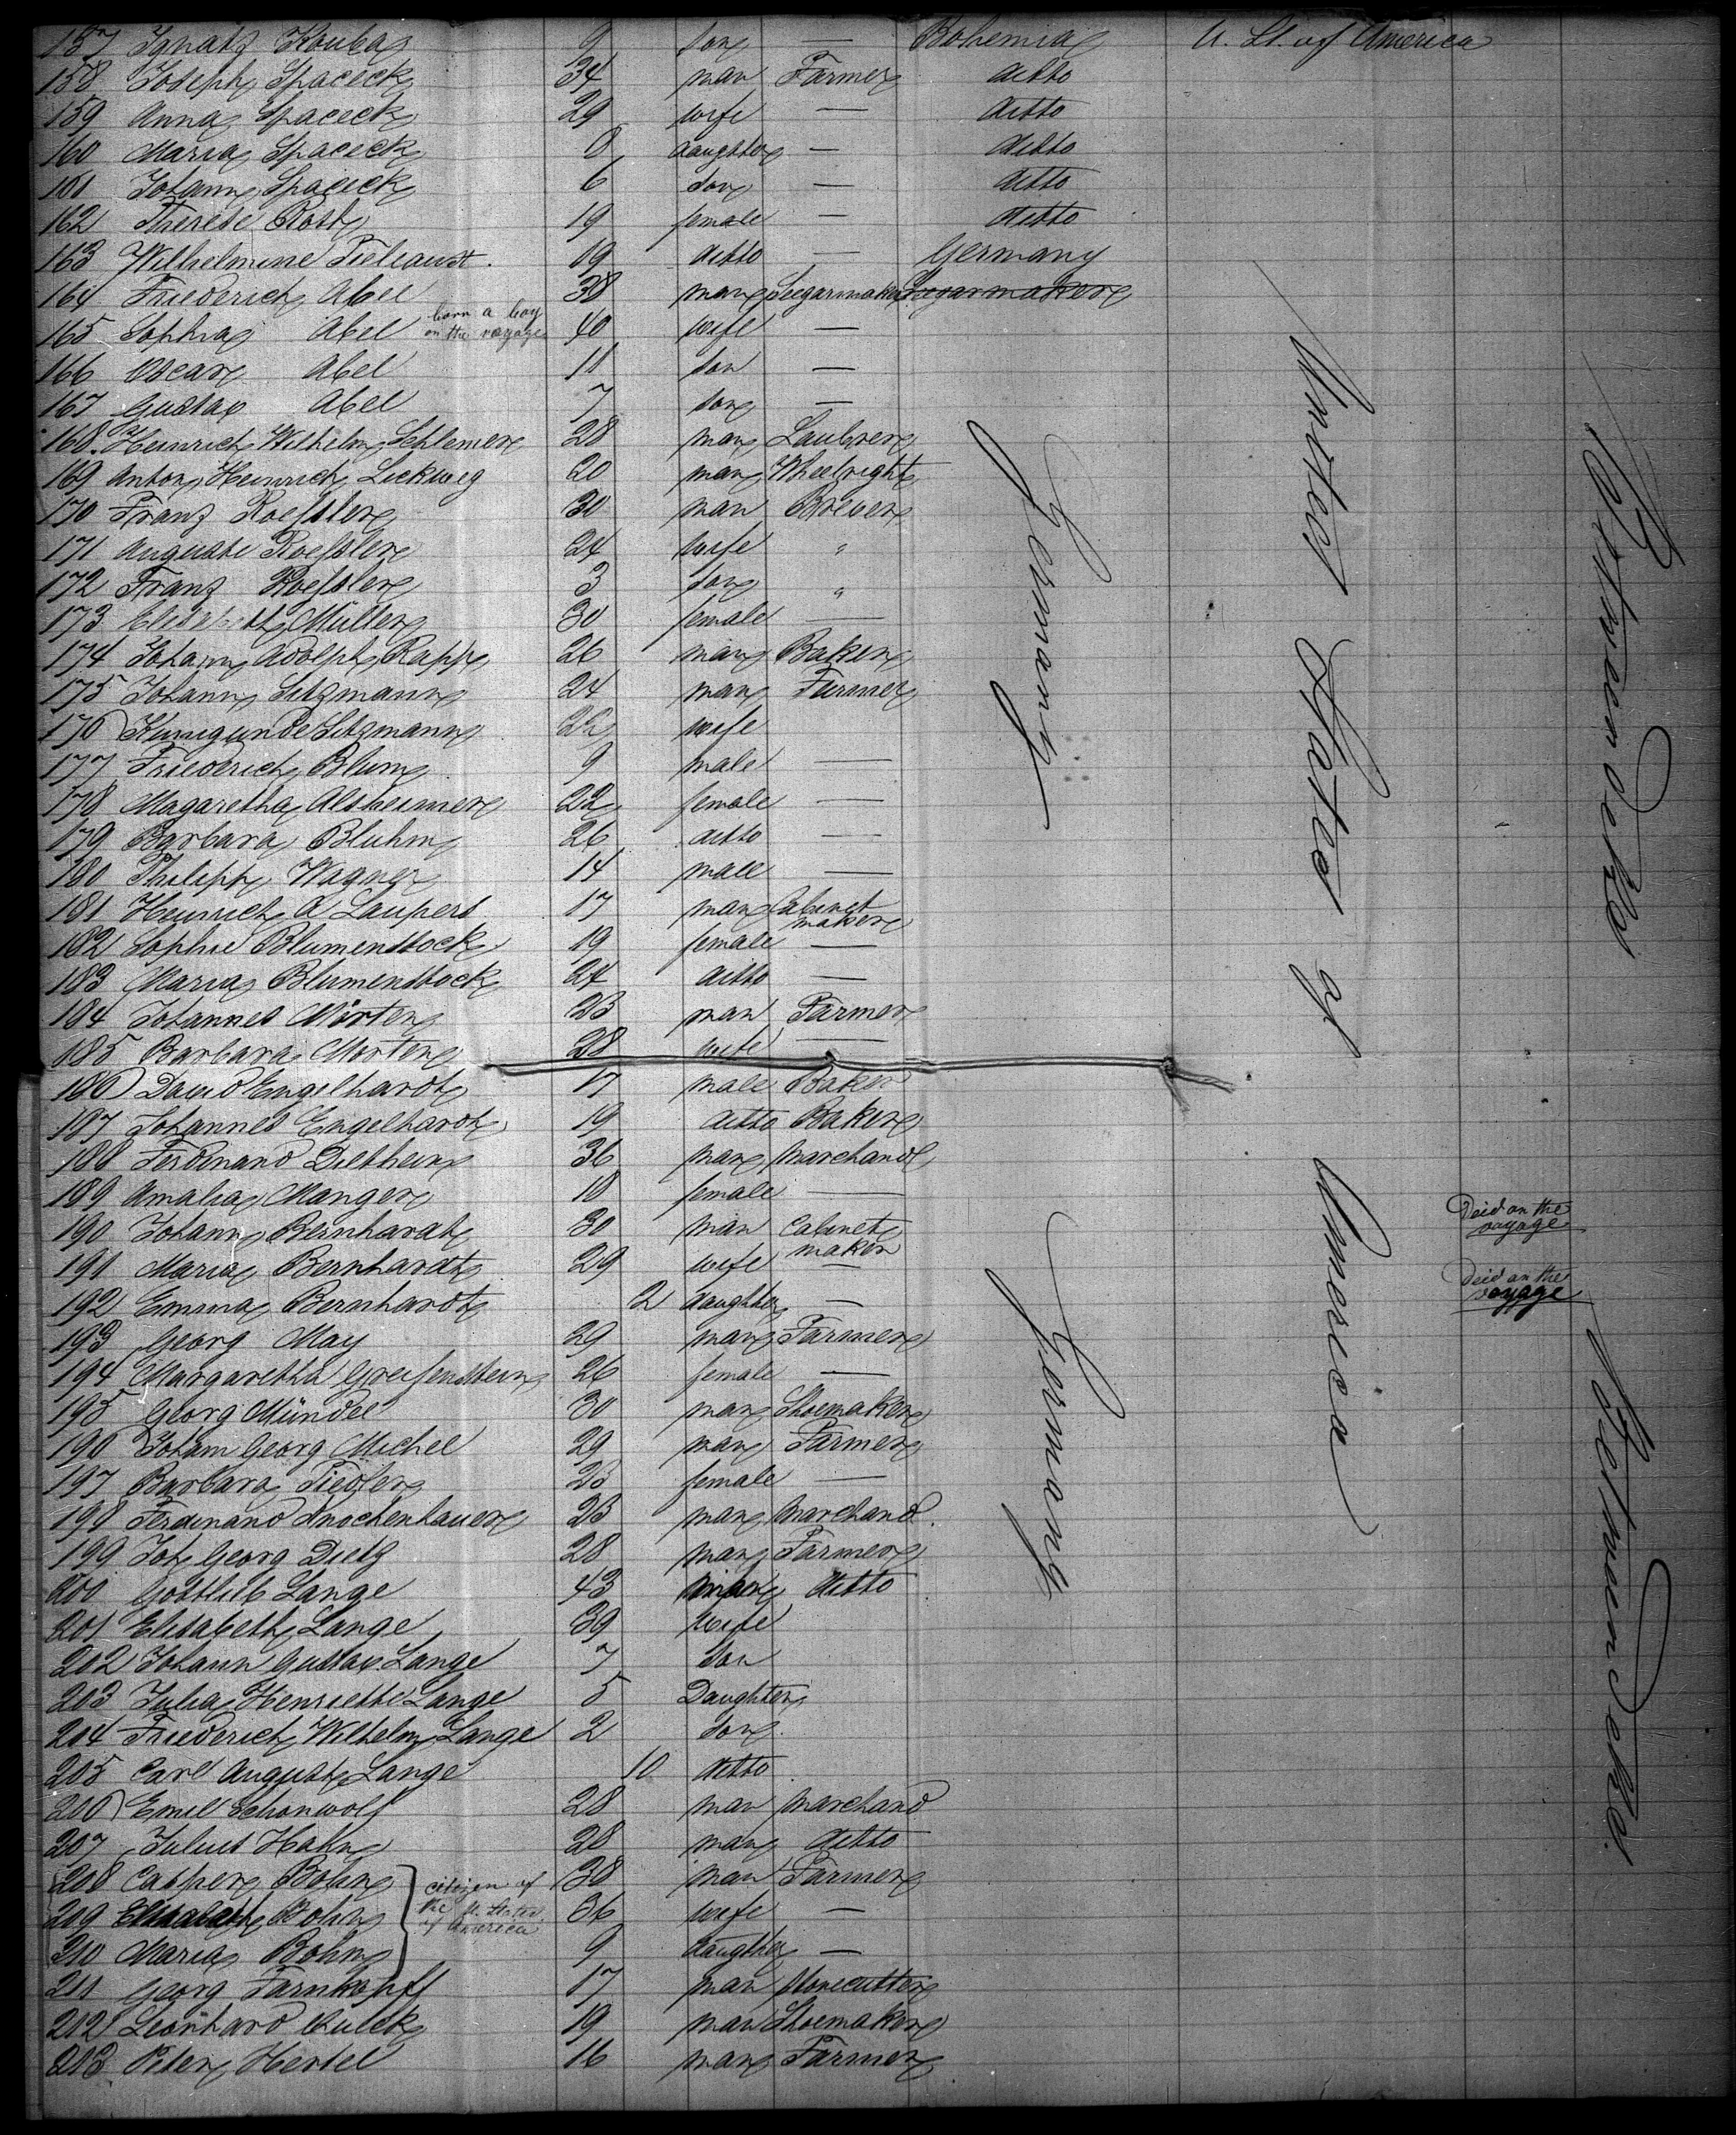 157 Ignatz Kouba 9 son — Bohemia U. St. of America
158 Joseph Spaceck 34 man Farmer ditto
159 Anna Spaceck 29 wife — ditto
160 Maria Spaceck 8 daugther — ditto
161 Johann Spaceck 6 son — ditto
162 Therese Rost 19 female — ditto
163 Wilhelmine 19 ditto — Germany
164 Friederich Abel 38 man Seegarmaker Seegarmaker
165 Sophia Abel born a boy on the voyage 40 wife —
166 Oscar Abel 11 son —
167 Gustav Abel 7 son —
168. Heinrich Wilhelm Schlemer 28 man
169 Anton Heinrich Leckweg 20 man Wheelright
170 Franz Roessler 30 man Brever
171 Auguste Roessler 24 wife "
172 Franz Roessler 3 son "
173 Elisabeth Müller 30 female —
174 Johann Adolph Rapp 26 man Baker
175 Johann Sitzmann 24 man Farmer
176 Kunigunde Sitzmann 22 wife
177 Friederich Blum 9 male —
178 Magaretha Alsheimer 22 female —
179 Barbara Bluhm 26 ditto —
180 Philipp Wagner 14 male —
181 Heinrich A Laupert 17 man Cabinet maker
182 Sophie Blumenstock 19 female —
183 Maria Blumenstock 24 ditto —
184 Johannes Mörten 23 man Farmer
185 Barbara Mörten 28 wife —
186 David Engelhardt 17 male Baker
187 Johannes Engelhardt 19 ditto Baker
188 Ferdinand Diethein 36 man Marchand
189 Amalia Manger 18 female —
190 Johann Bernhardt 30 man Cabinet maker
191 Maria Bernhardt 29 wife —
192 Emma Bernhardt 2 daughter —
193 Georg May 29 man Farmer
194 Margaretha Greifenstein 26 female —
195 Georg Mündel 30 man Shoemaker
196 Joham Georg Michel 29 man Farmer
197 Barbara Piedler 23 female —
198 Ferdinand Knochenhauer 23 man Marchand
199 Joh. Georg Dietz 28 man Farmer
200 Gottlieb Lange 43 man ditto
201 Elisabeth Lange 39 wife
202 Johann Gustav Lange 7 son
203 Julia Henriette Lange 5 Daughter
204 Friederich Wilhelm Lange 2 son
205 Carl August Lange 10 ditto
206 Emil Schonwolf 28 man Marchand
207 Julius Hahn 28 man ditto
208 Casper Bohn 38 man Farmer
209 Elisabeth Bohn 36 wife —
210 Maria Bohn 9 daugther —
citizen of the U. States of America
211 Georg Farnkopff 17 man Stonecutter
212 Leonhard Kulck 19 man Shoemaker
213 Peter Hertel 16 man Farmer
Germany
Germany
United States of America
Died on the voyage
Died on the voyage
Between decks
Between decks